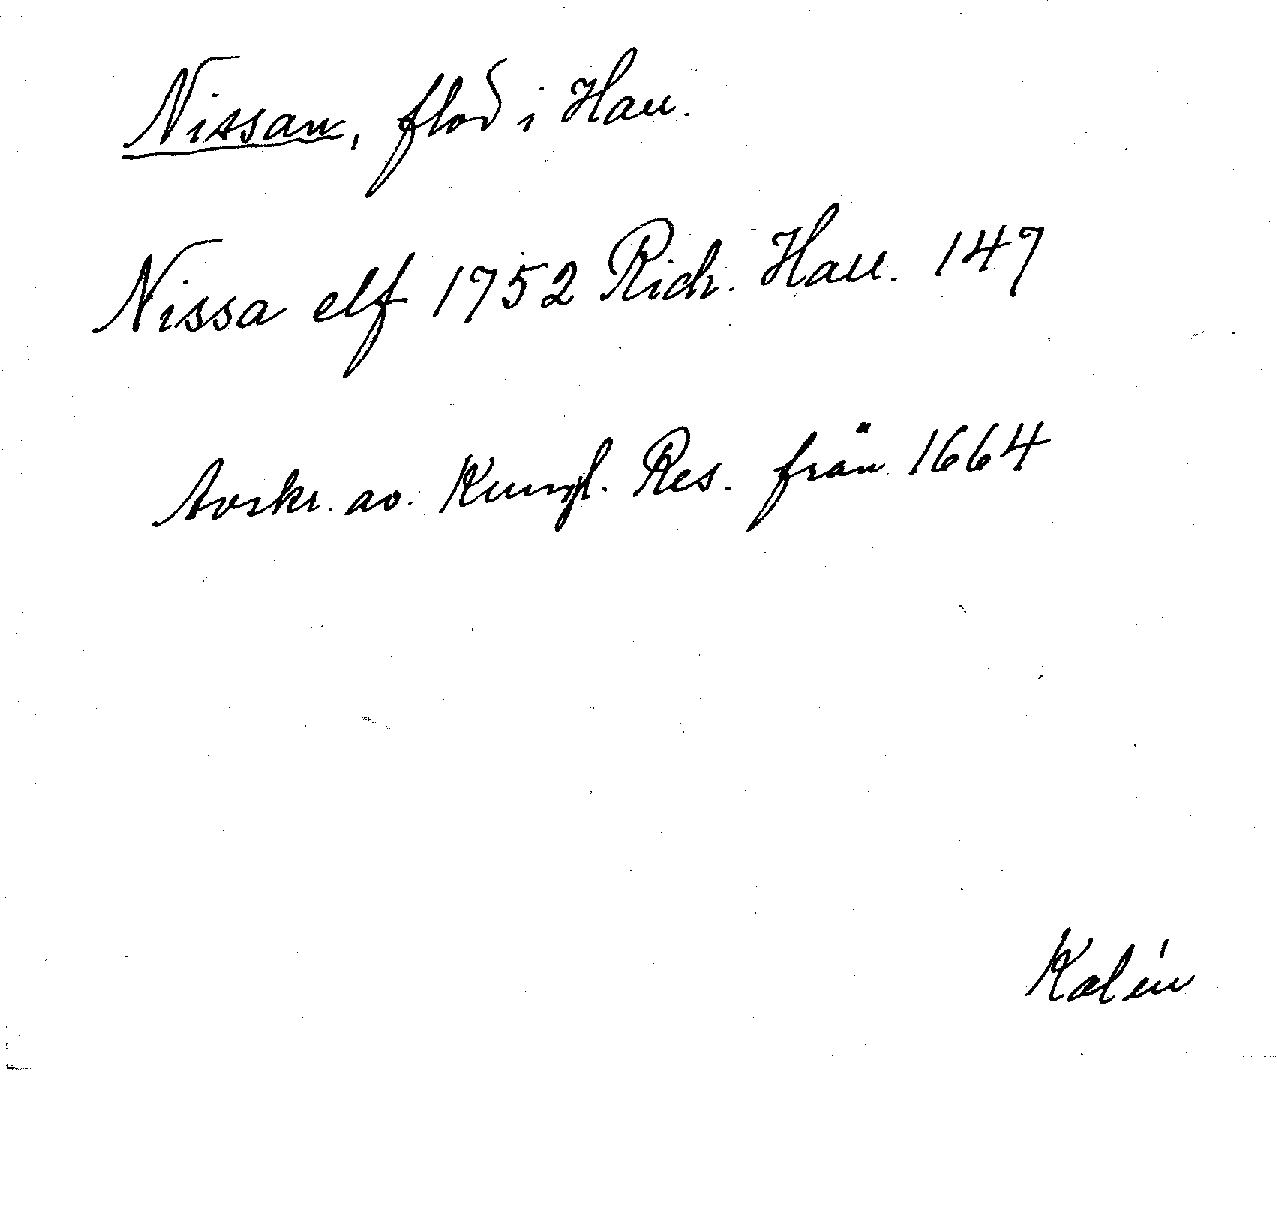 Nissan, flod i Hall.
Nissa elf 1752 Rich. Hall. 147
Avskr. av. Kungl. Res. från 1664
Kalén